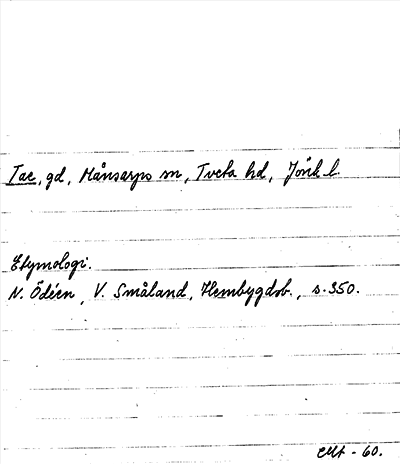 Tae, gd, Månsarps sn, Tveta hd, Jönk. l.
Etymologi.
N. Ödéen, V. Småland, Hembygdsb., s. 350.
- 60.